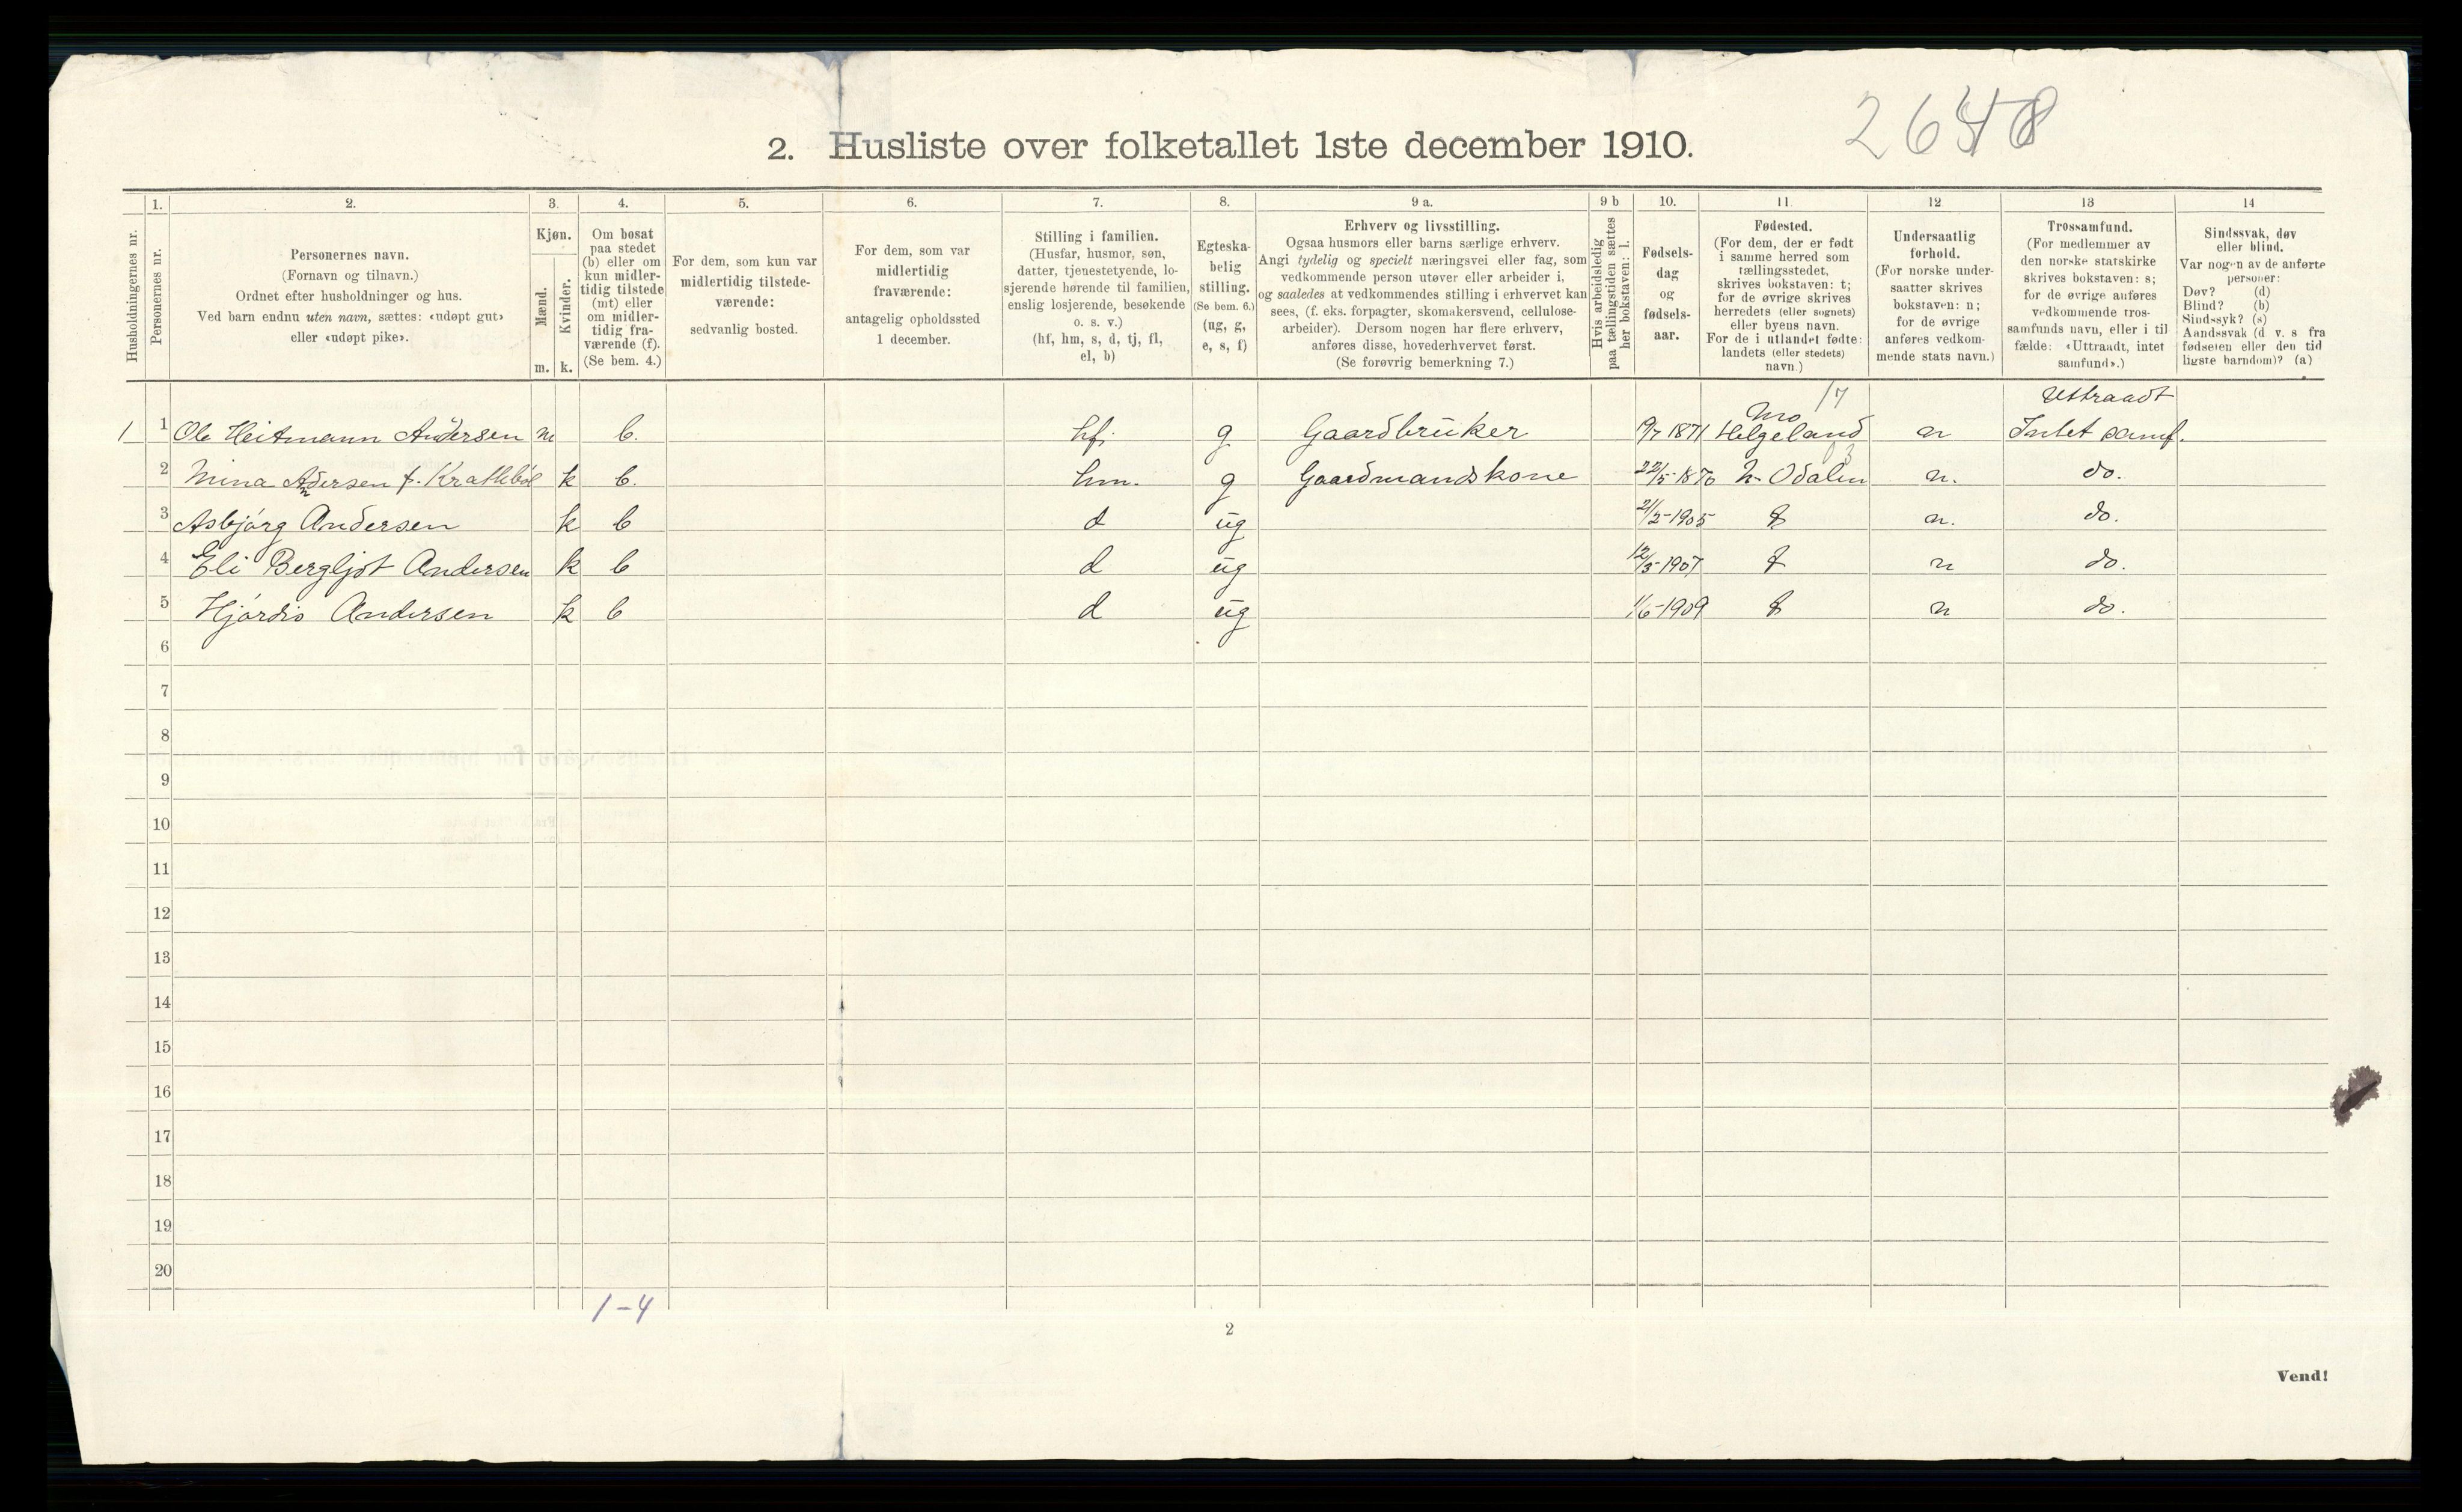 2648
2. Husliste over folketallet 1ste december 1910.
Husholdningernes nr.
1.
Personernes nr.
2.
Personernes navn.
(Fornavn og tilnavn.)
Ordnet efter husholdninger og hus.
Ved barn endnu uten navn, sættes: «udøpt gut»
eller «udøpt pike».
3.
Kjøn.
Mænd.
Kvinder.
m. k.
4.
Om bosat
paa stedet
(b) eller om
kun midler-
tidig tilstede
(mt) eller
om midler-
tidig fra-
værende (f).
(Se bem. 4.)
5.
For dem, som kun var
midlertidig tilstede-
værende:
sedvanlig bosted.
6.
For dem, som var
midlertidig
fraværende:
antagelig opholdssted
1 december.
7.
Stilling i familien.
(Husfar, husmor, søn,
datter, tjenestetyende, lo-
sjerende hørende til familien,
enslig losjerende, besøkende
o. s. v.)
(hf, hm, s, d, tj, fl,
el, b)
8.
Egteska-
belig
stilling.
(Se bem. 6.)
(ug, g,
e, s, f)
9 a.
Erhverv og livsstilling.
Ogsaa husmors eller barns særlige erhverv.
Angi tydelig og specielt næringsvei eller fag, som
vedkommende person utøver eller arbeider i,
og saaledes at vedkommendes stilling i erhvervet kan
sees, (f. eks. forpagter, skomakersvend, cellulose-
arbeider). Dersom nogen har flere erhverv,
anføres disse, hovederhvervet først.
(Se forøvrig bemerkning 7.)
9 b
Hvis arbeidsledig
paa tællingstiden sættes
her bokstaven: l.
10.
Fødsels-
dag
og
fødsels-
aar.
11.
Fødested.
(For dem, der er født
i samme herred som
tællingsstedet,
skrives bokstaven: t;
for de øvrige skrives
herredets (eller sognets)
eller byens navn.
For de i utlandet fødte:
landets (eller stedets)
navn.)
12
Undersaatlig
forhold.
(For norske under-
saatter skrives
bokstaven: n;
for de øvrige
anføres vedkom-
mende stats navn.)
13
Trossamfund.
(For medlemmer av
den norske statskirke
skrives bokstaven: s;
for de øvrige anføres
vedkommende tros-
samfunds navn, eller i til
fælde: «Uttraadt, intet
samfund».)
14
Sindssvak, døv
eller blind.
Var nogen av de anførte
personer:
Døv? (d)
Blind? (b)
Sindssyk? (s)
Aandssvak (d v. s fra
fødselen eller den tid
ligste barndom)? (a)
17
Mo
Uttraadt
1 1 Ole Heitmann Andersen m b. hf. g Gaardbruker 19/7 1871 Helgeland n Intet samf.
03
2 Mina Andersen f. Krattebøl k b. hm. g Gaardmandskone 22/5-1870 N-Odalen n. do.
3 Asbjørg Andersen k b d ug 21/2-1905 t n. do.
4 Eli Bergljot Andersen k b d ug 12/5-1907 t n do.
5 Hjørdis Andersen k b d ug 1/6-1909 t n do.
6
7
8
9
10
11
12
13
14
15
16
17
18
19
20
1-4
2
Vend!